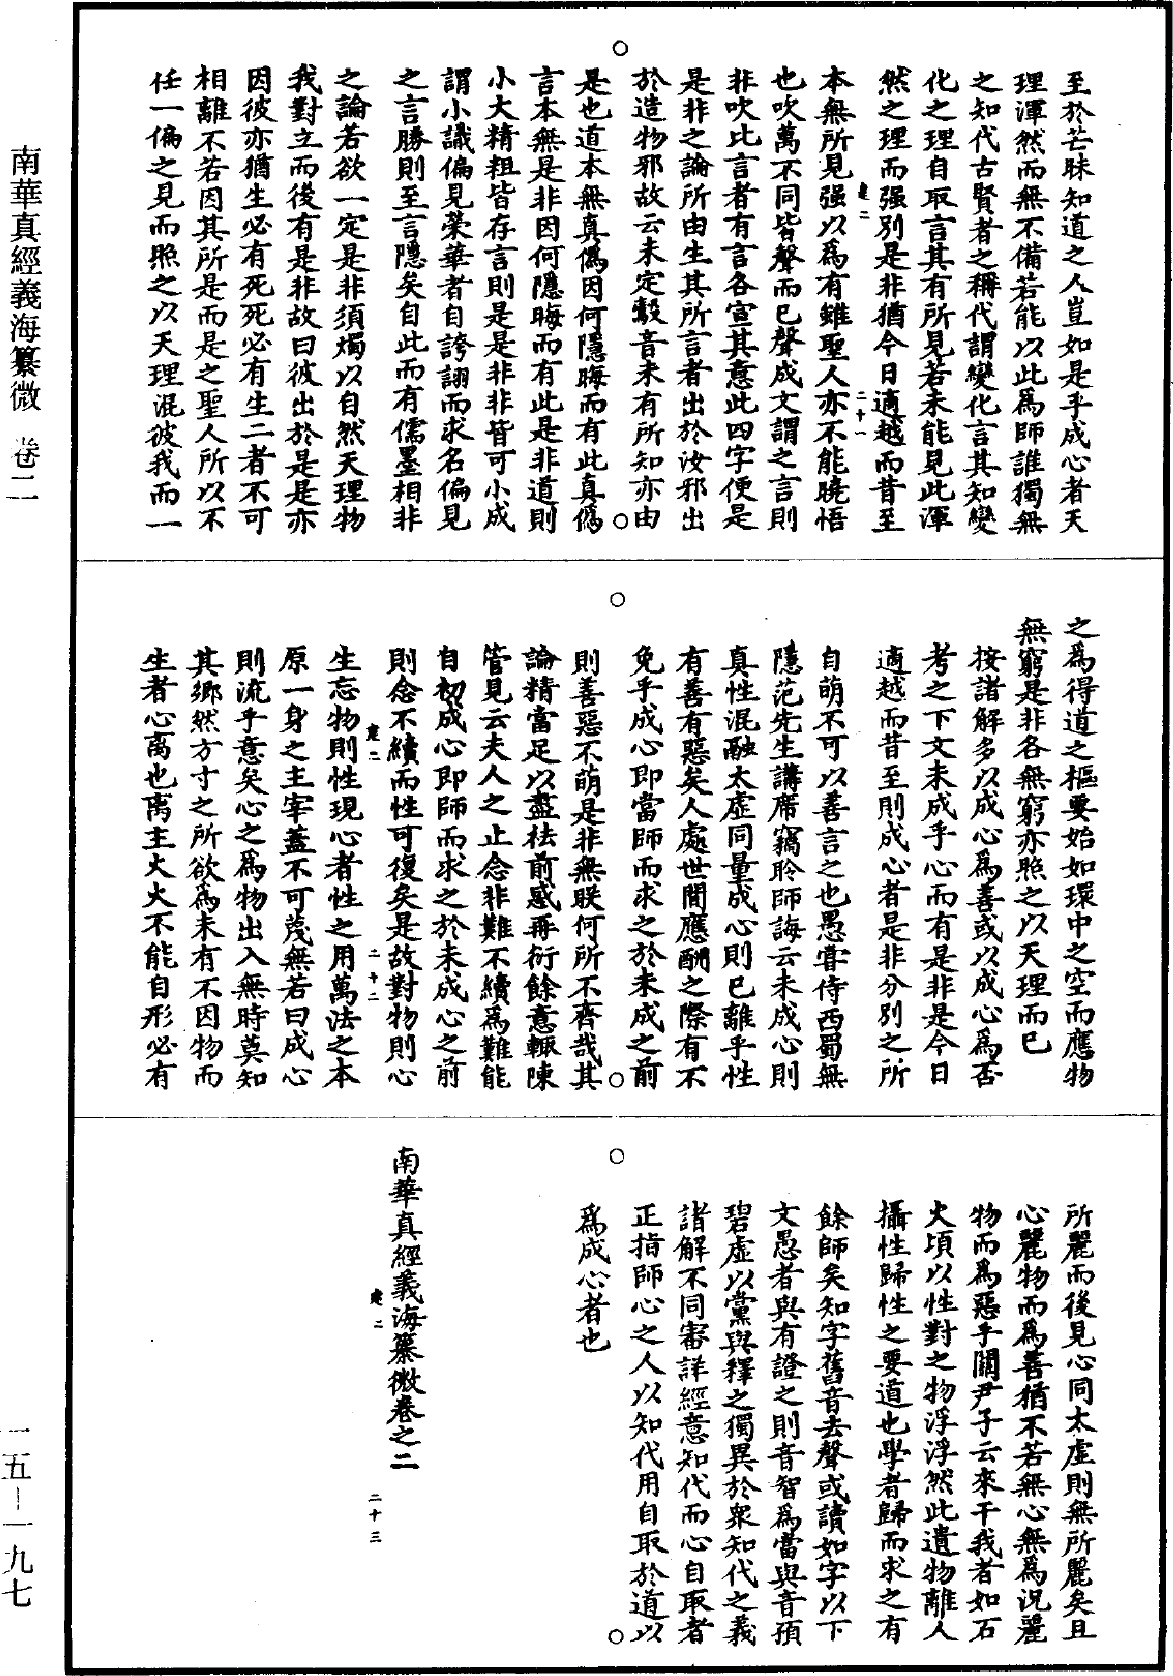 南華真經義海纂微　卷二
一五—一九七
至於芒昧知道之人豈如是乎成心者天
理渾然而無不備若能以此為師誰獨無
之知代古賢者之稱代謂變化言其知變
化之理自取言其有所見若未能見此渾
然之理而强別是非猶今日適越而昔至
建二　二十一
本無所見强以為有雖聖人亦不能曉悟
也吹萬不同皆聲而已聲成文謂之言則
非吹比言者有言各宣其意此四字便是
是非之論所由生其所言者出於汝邪出
於造物邪故云未定鷇音未有所知亦由
是也道本無真僞因何隱晦而有此真僞
言本無是非因何隱晦而有此是非道則
小大精粗皆存言則是是非非皆可小成
謂小識偏見榮華者自誇詡而求名偏見
之言勝則至言隱矣自此而有儒墨相非
之論若欲一定是非須燭以自然天理物
我對立而後有是非故曰彼出於是是亦
因彼亦猶生必有死死必有生二者不可
相離不若因其所是而是之聖人所以不
任一偏之見而照之以天理混彼我而一
之為得道之樞要始如環中之空而應物
無窮是非各無窮亦照之以天理而已
按諸解多以成心為善或以成心為否
考之下文未成乎心而有是非是今日
適越而昔至則成心者是非分別之所
自萌不可以善言之也愚嘗侍西蜀無
隱范先生講席竊聆師誨云未成心則
真性混融太虛同量成心則已離乎性
有善有惡矣人處世間應酬之際有不
免乎成心即當師而求之於未成之前
則善惡不萌是非無眹何所不齊哉其
論精當足以盡祛前惑再衍餘意輒陳
管見云夫人之止念非難不續為難能
自初成心即師而求之於未成心之前
則念不續而性可復矣是故對物則心
建二　二十二
生忘物則性現心者性之用萬法之本
原一身之主宰蓋不可蔑無若曰成心
則流乎意矣心之為物出入無時莫知
其鄉然方寸之所欲為未有不因物而
生者心离也离主火火不能自形必有
所麗而後見心同太虛則無所麗矣且
心麗物而為善猶不若無心無為況麗
物而為惡乎關尹子云來干我者如石
火頃以性對之物浮浮然此遺物離人
攝性歸性之要道也學者歸而求之有
餘師矣知字舊音去聲或讀如字以下
文愚者與有證之則音智為當與音預
碧虛以黨與釋之獨異於衆知代之義
諸解不同審詳經意知代而心自取者
正指師心之人以知代用自取於道以
為成心者也
南華真經義海纂微卷之二
建二　二十三